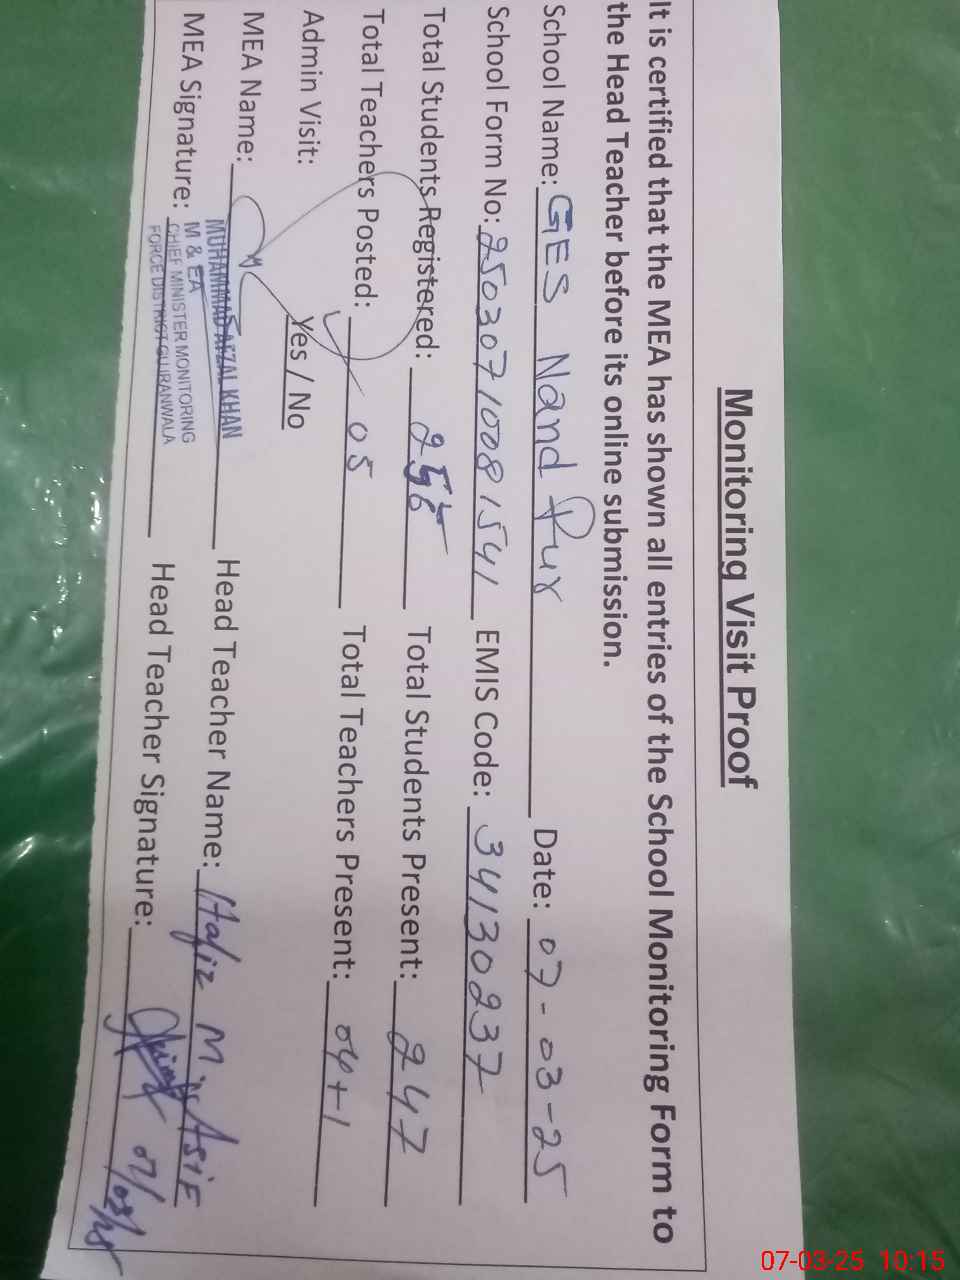 Monitoring Visit Proof
It is certified that the MEA has shown all entries of the School Monitoring Form to
the Head Teacher before its online submission.
School Name: GES Nand Pur Date: 07-03-25
School Form No: 25030710081541 EMIS Code: 34130237
Total Students Registered: 256 Total Students Present: 247
Total Teachers Posted: 05 Total Teachers Present: 04+1
Admin Visit: Yes / No
MEA Name: MUHAMMAD AFZAL KHAN Head Teacher Name: Hafiz M. Asif
M & EA
MEA Signature: CHIEF MINISTER MONITORING Head Teacher Signature: 07/03/25
FORCE DISTRICT GUJRANWALA
07-03-25 10:15